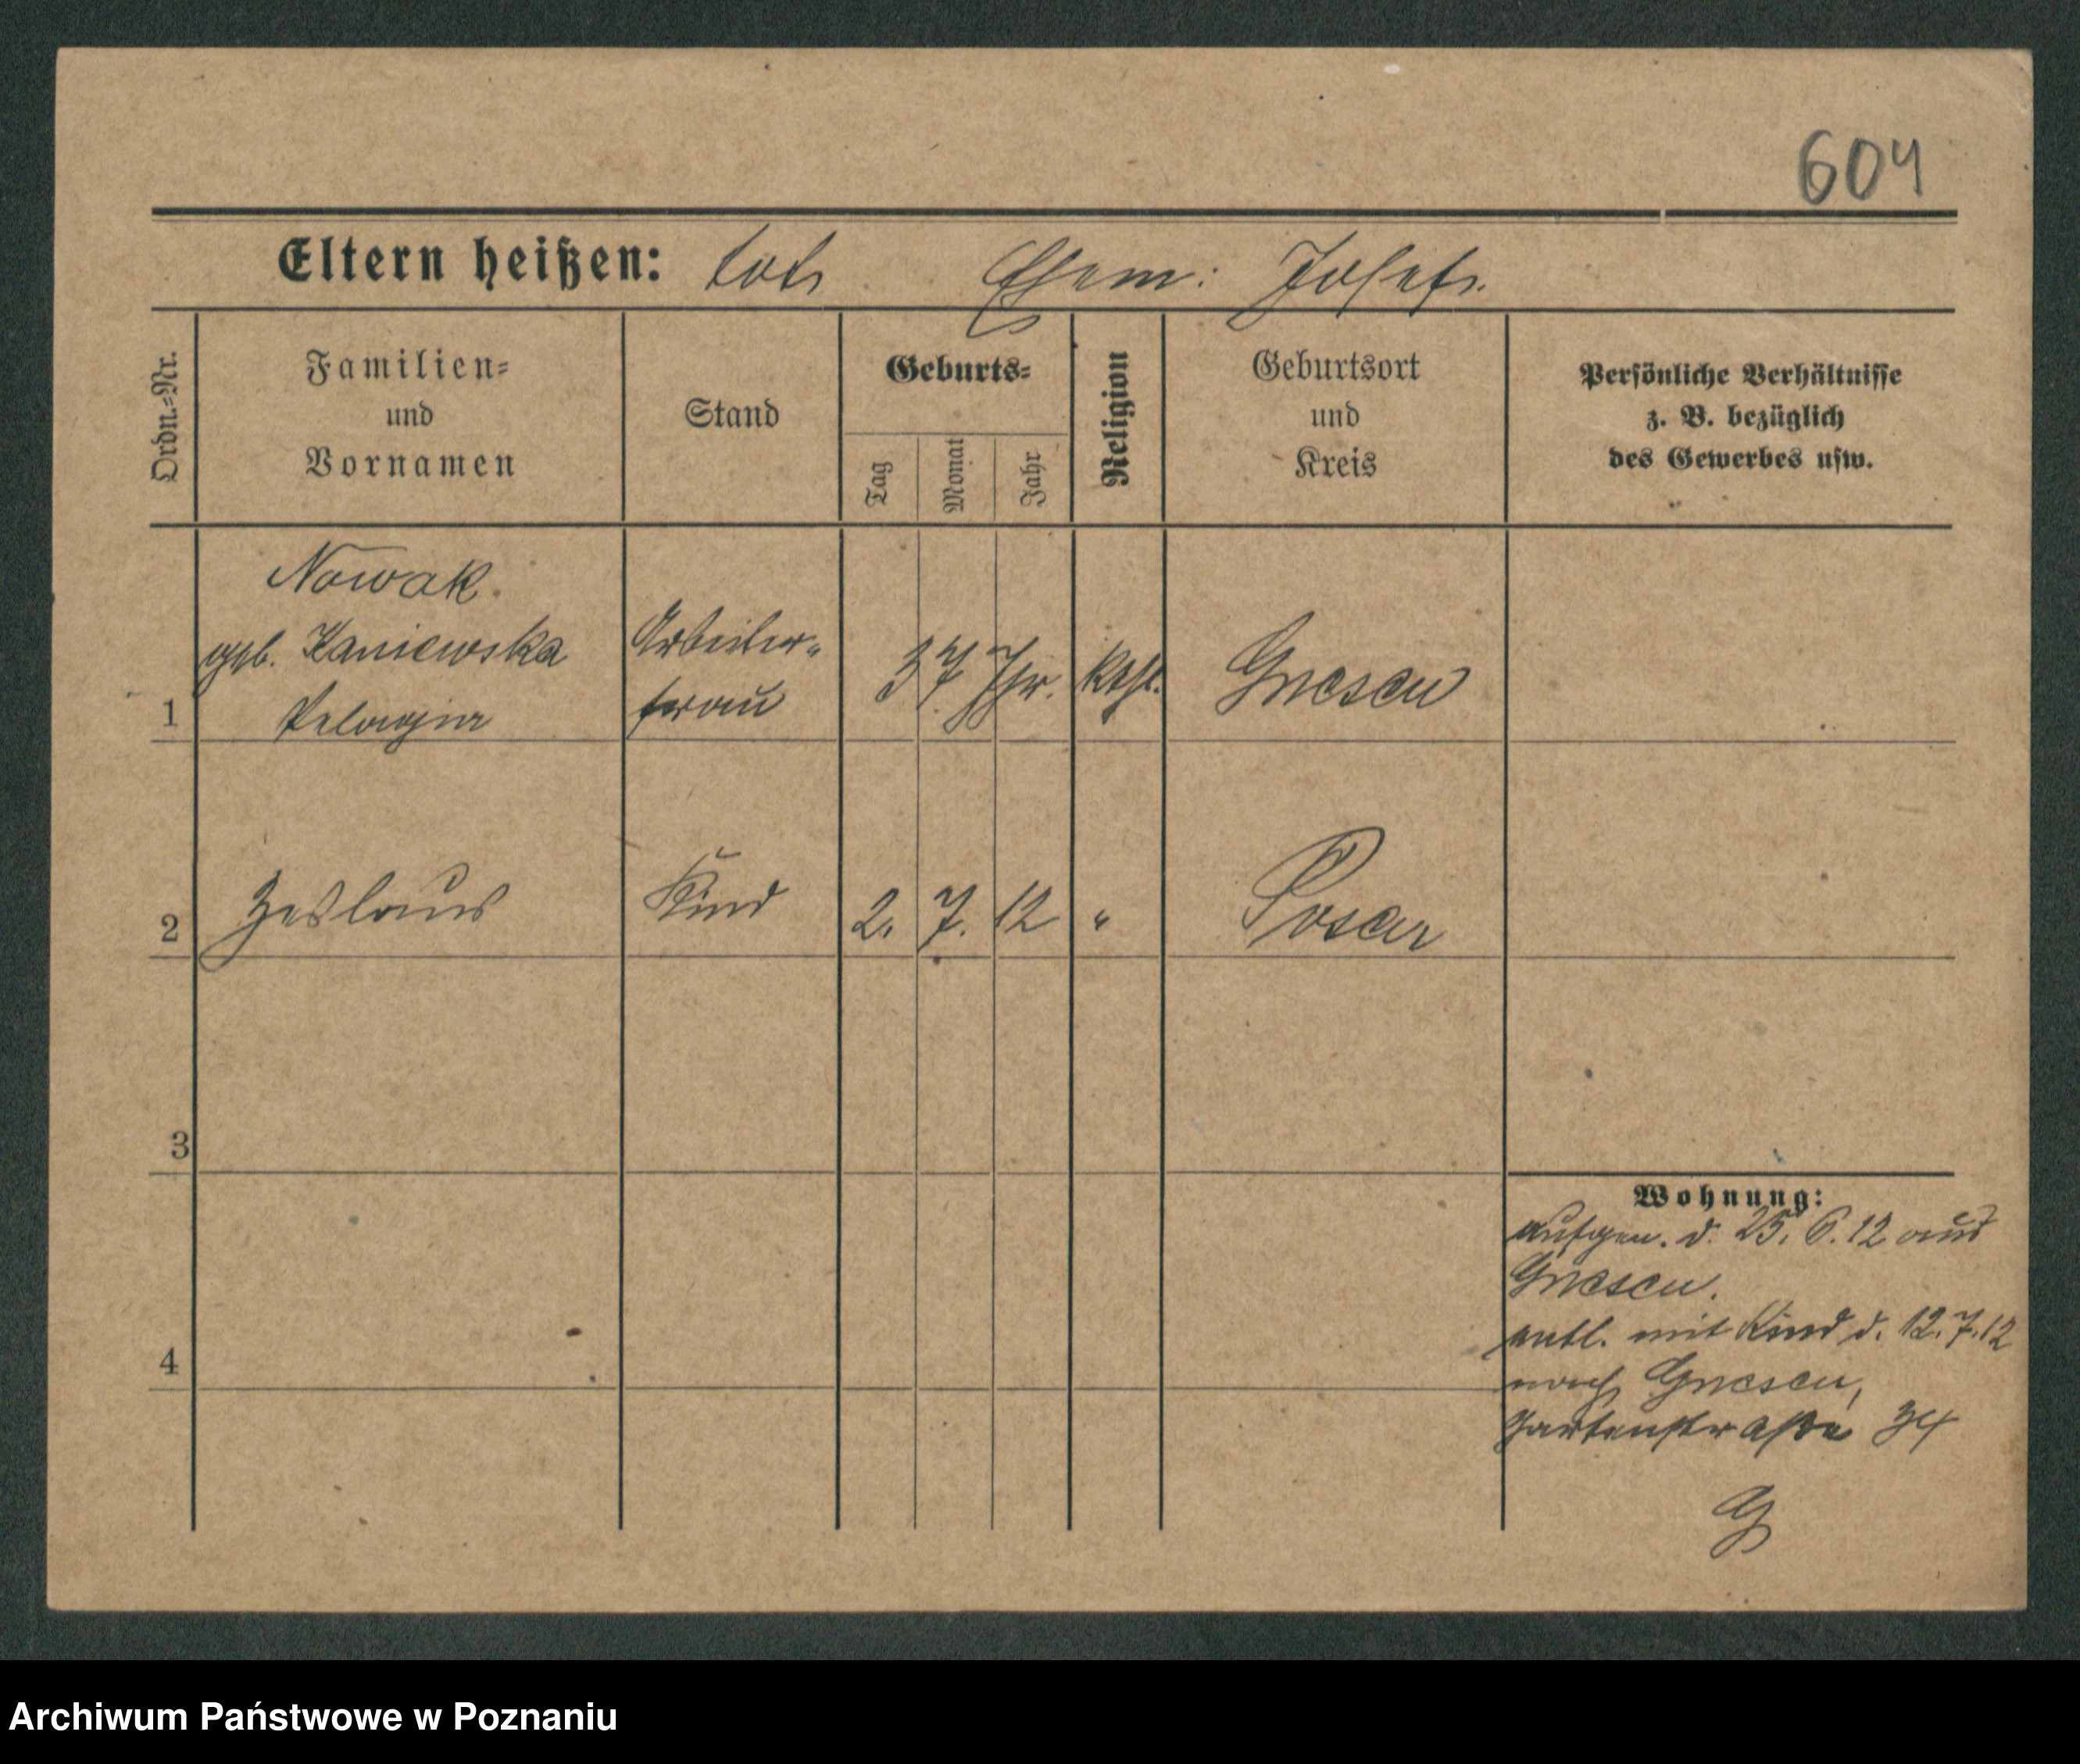 604
Eltern heißen: tot. Ehem: Josef.
Ordn.-Nr.
Familien-
und
Vornamen
Stand
Geburts-
Tag
Monat
Jahr
Religion
Geburtsort
und
Kreis
Persönliche Verhältnisse
z. B. bezüglich
des Gewerbes usw.
1
Nowak.
geb. Kaniewska
Pelagia
Arbeiter-
frau
37 Jhr.
kth.
Gnesen
2
Zeslaus
Kind
2. 7. 12
"
Posen
3
4
Wohnung:
aufgen. d. 25. 6. 12 aus
Gnesen.
entl. mit Kind d. 12. 7. 12
nach Gnesen,
Gartenstraße 34
G
Archiwum Państwowe w Poznaniu